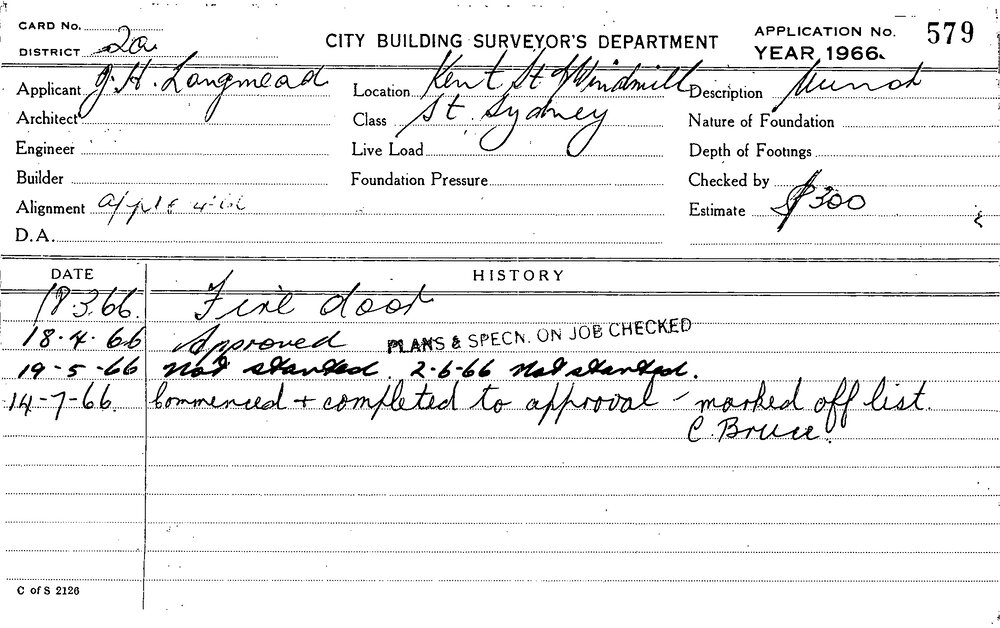 CARD No.
DISTRICT 2a
CITY BUILDING SURVEYOR'S DEPARTMENT
APPLICATION No. 579
YEAR 1966.
Applicant J. H. Langmead
Location Kent St & Windmill
Description
Architect
Class St. Sydney
Nature of Foundation
Engineer
Live Load
Depth of Footings
Builder
Foundation Pressure
Checked by
Alignment
Estimate $300
D.A.
DATE HISTORY
18.3.66. Fire door
18.4.66 Approved PLANS & SPECN. ON JOB CHECKED
19-5-66 Not started. 2-6-66 Not started.
14-7-66. Commenced + completed to approval - marked off list.
C. Bruce.
C of S 2126